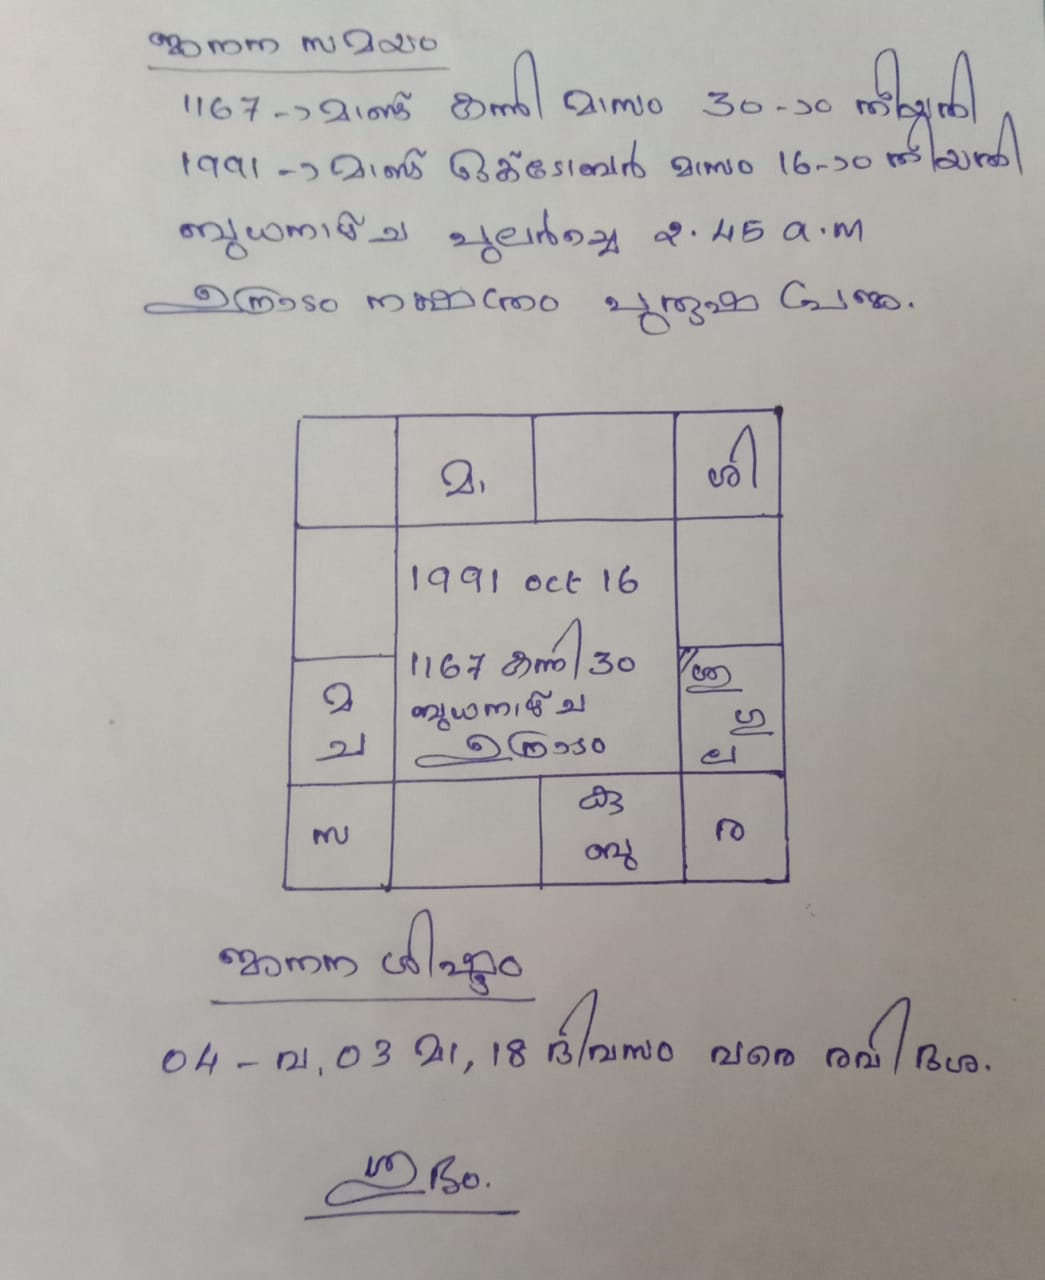 ജനന സമയം
1167-ാമാണ്ട് കന്നി മാസം 30-ാം തീയ്യതി
1991-ാമാണ്ട് ഒക്ടോബർ മാസം 16-ാം തീയതി
ബുധനാഴ്ച പുലർച്ചെ 2.45 a.m
ഉത്രാടം നക്ഷത്രം പുരുഷ പ്രജ.
മാ
ശി
1991 oct 16
1167 കന്നി 30
ബുധനാഴ്ച
ഉത്രാടം
മ
ച
ശു
ഗു
ല
സ
കു
ബു
ര
ജനന ശിഷ്ടം
04 - വ, 03 മാ, 18 ദിവസം വരെ രവി ദശ.
ശുഭം.